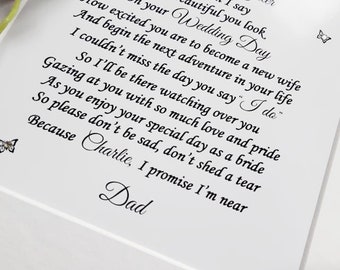 I say
beautiful you look
on your Wedding Day
How excited you are to become a new wife
And begin the next adventure in your life
I couldn't miss the day you say "I do"
So I'll be there watching over you
Gazing at you with so much love and pride
As you enjoy your special day as a bride
So please don't be sad, don't shed a tear
Because Charlie, I promise I'm near
Dad